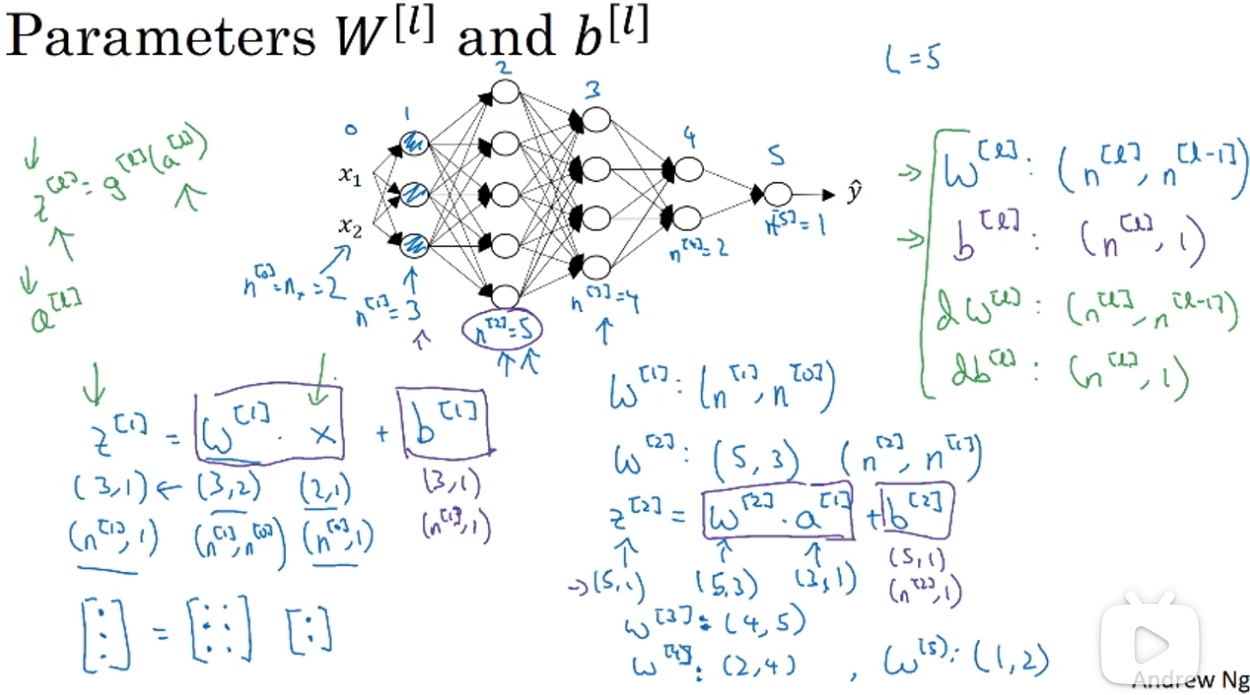 Parameters W^[l] and b^[l]
L = 5
0 1 2 3 4 5
x₁
x₂
ŷ
n^[0] = nₓ = 2
n^[1] = 3
n^[2] = 5
n^[3] = 4
n^[4] = 2
n^[5] = 1
z^[l] = g^[l](a^[l])
a^[l]
W^[l] : (n^[l], n^[l-1])
b^[l] : (n^[l], 1)
dW^[l] : (n^[l], n^[l-1])
db^[l] : (n^[l], 1)
z^[1] = W^[1] · x + b^[1]
(3,1) ← (3,2) (2,1) (3,1)
(n^[1], 1) (n^[1], n^[0]) (n^[0], 1) (n^[1], 1)
W^[1] : (n^[1], n^[0])
W^[2] : (5, 3) (n^[2], n^[1])
z^[2] = W^[2] · a^[1] + b^[2]
→ (5,1) (5,3) (3,1) (5,1)
(n^[2], 1)
W^[3] : (4, 5)
W^[4] : (2, 4) , W^[5] : (1, 2)
Andrew Ng